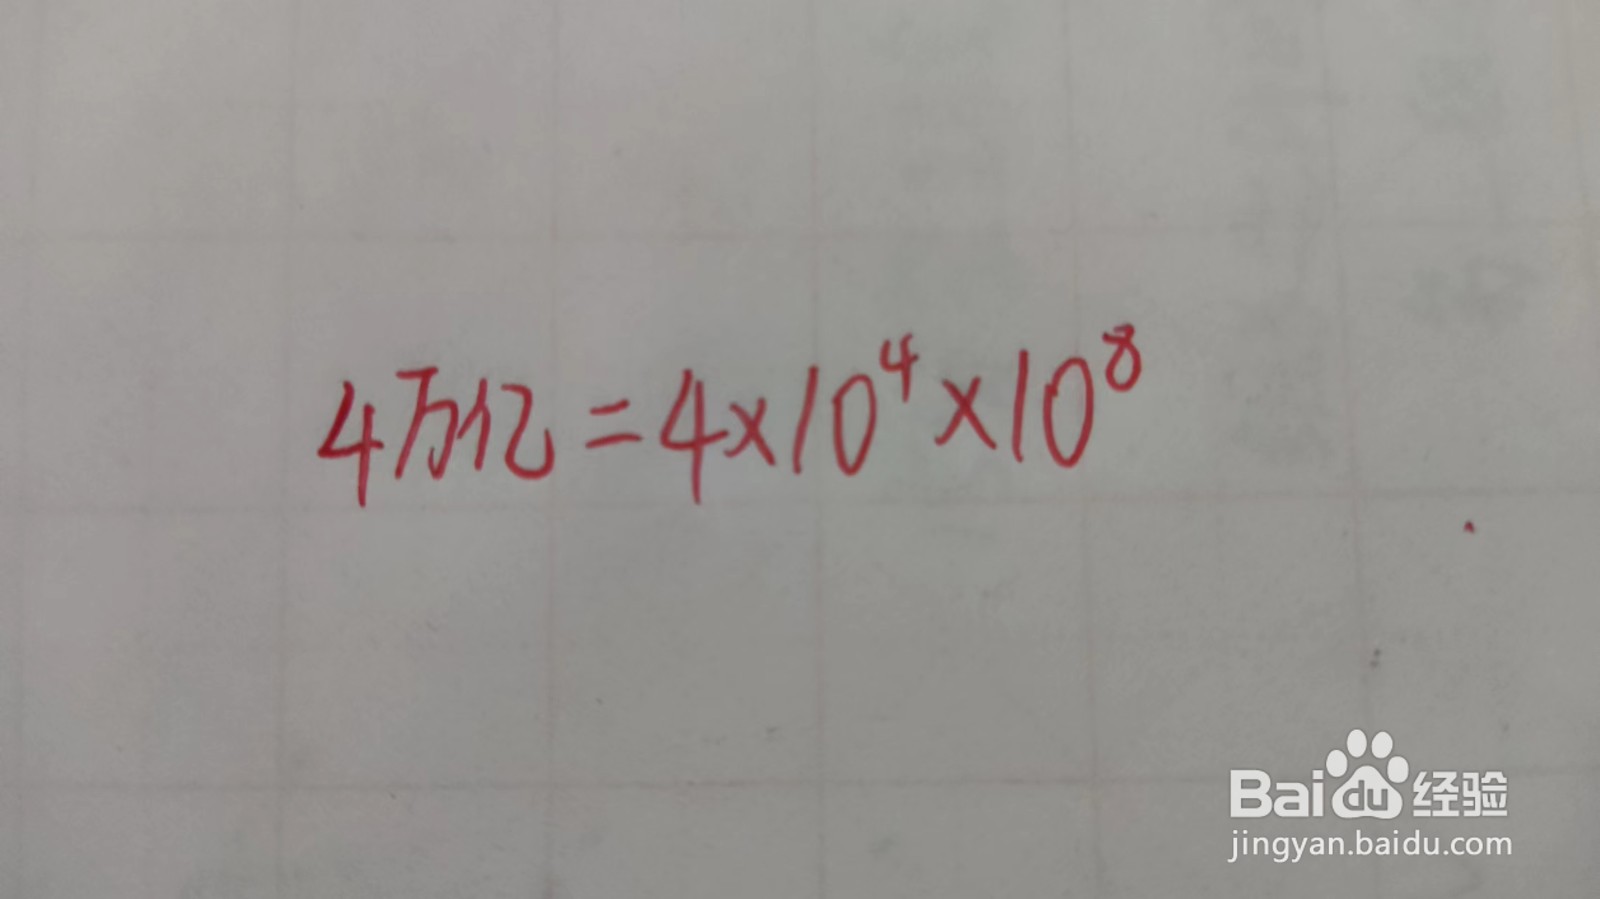 4万亿=4×10⁴×10⁸
Baidu经验
jingyan.baidu.com